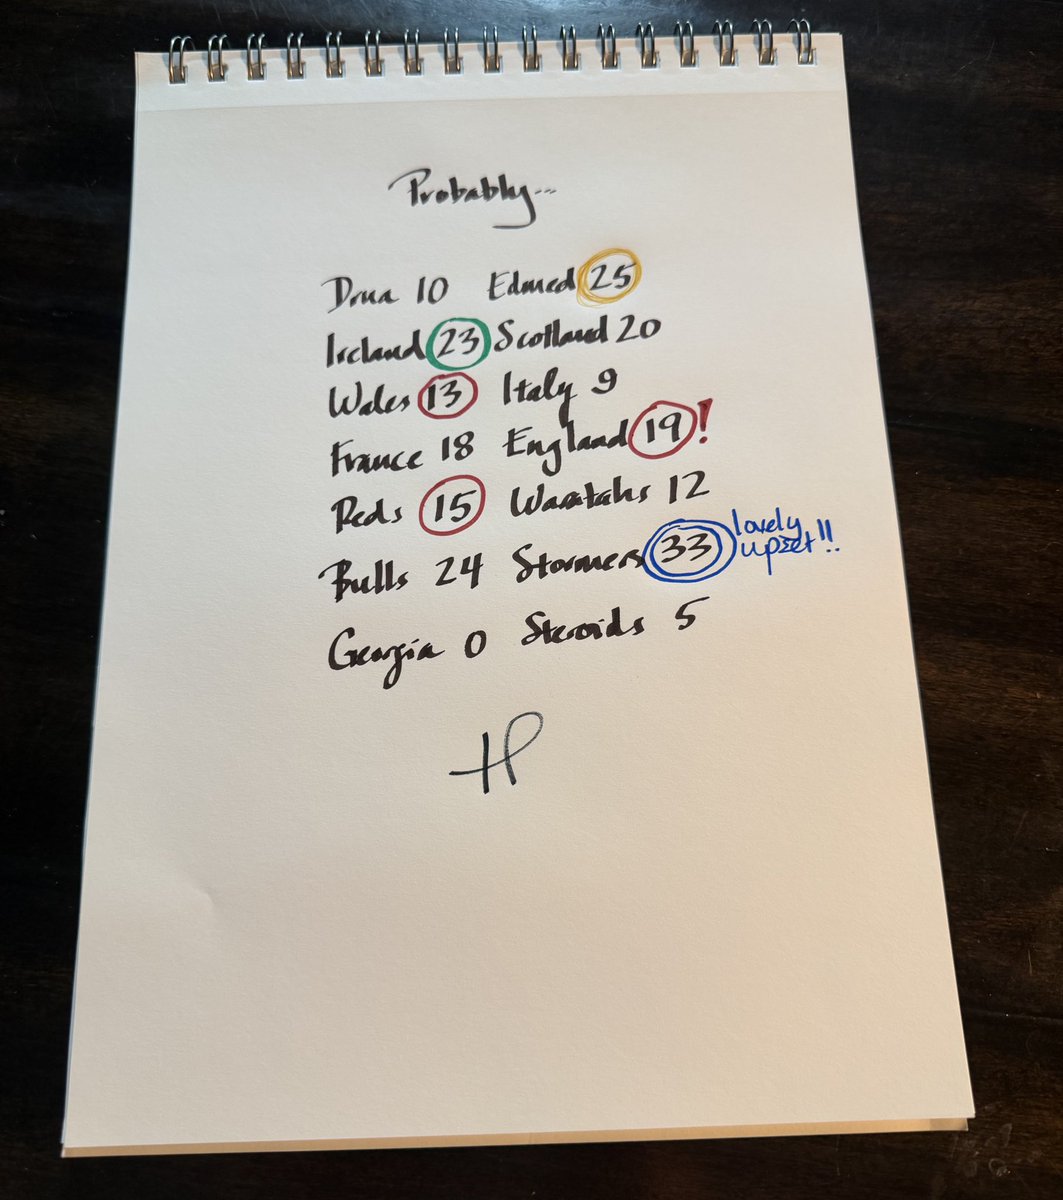 Probably...
Drua 10 Edmed 25
Ireland 23 Scotland 20
Wales 13 Italy 9
France 18 England 19!
Reds 15 Waratahs 12
Bulls 24 Stormers 33 lovely upset!!
Georgia 0 Steroids 5
HP